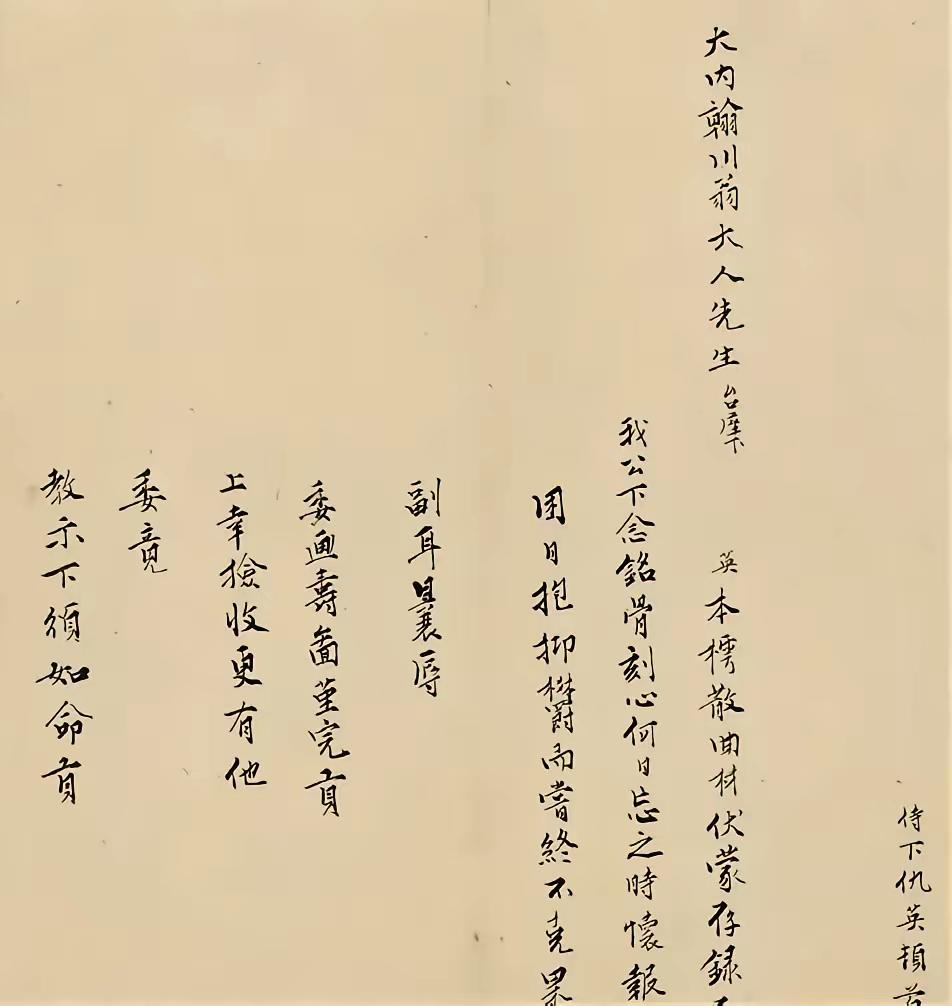 侍下仇英頓首
大内翰川翁大人先生台座下 英本樗散曲材伏蒙存録
我公下念銘骨刻心何日忘之時懷報
困日抱抑欝而嘗終不克果
副耳曩辱
委画壽圖茔完貢
上幸撿收更有他
委竟
教示下須如命貢